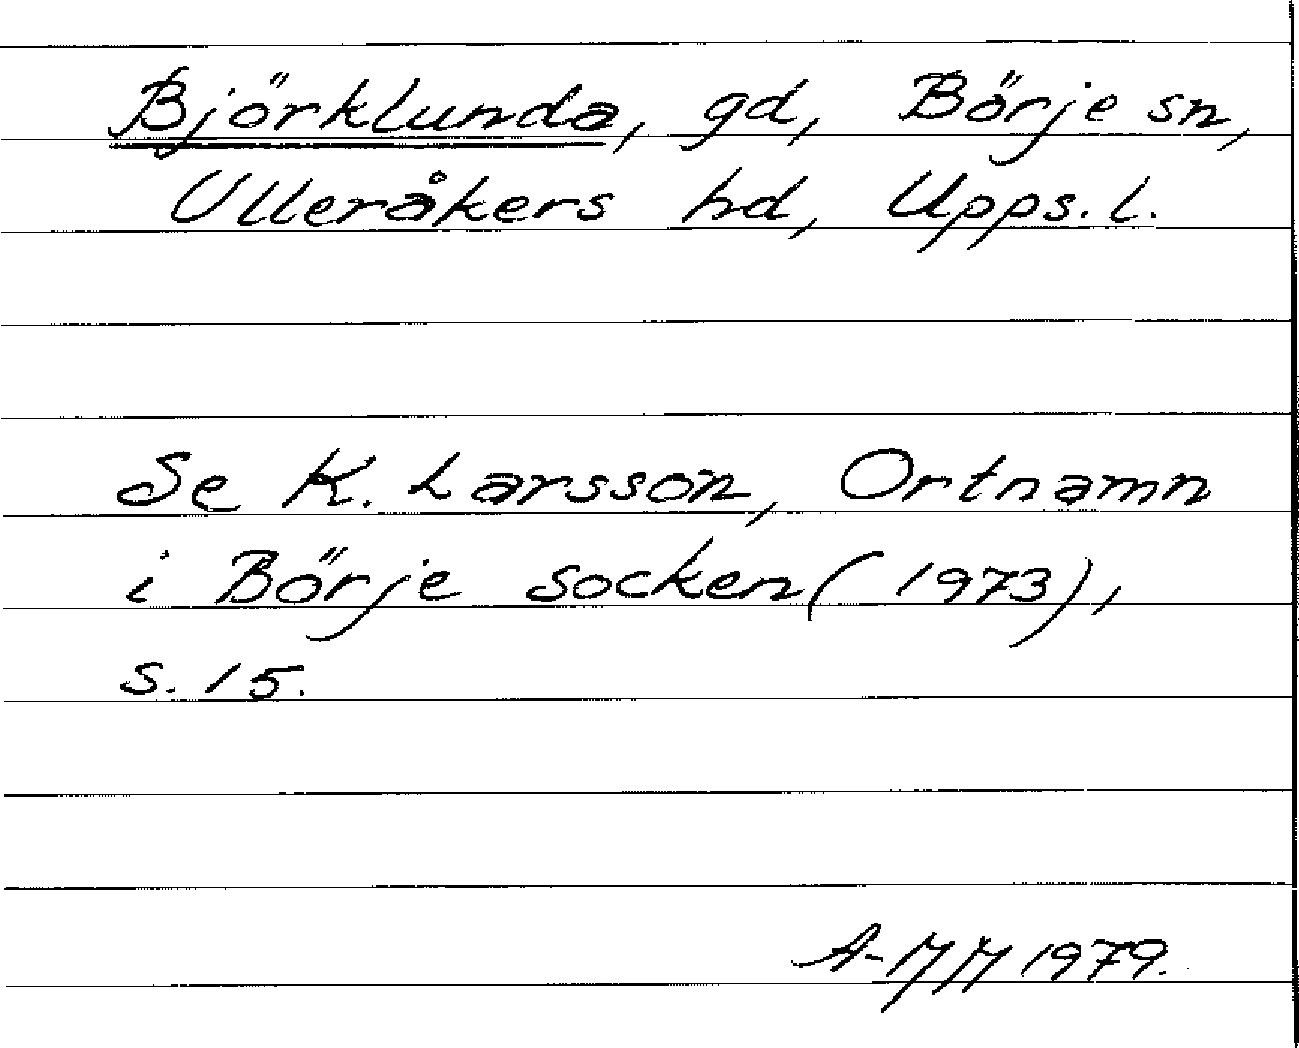 Björklunda, gd, Börje sn,
Ulleråkers hd, Upps. l.
Se K. Larsson, Ortnamn
i Börje socken (1973),
s. 15.
1979.